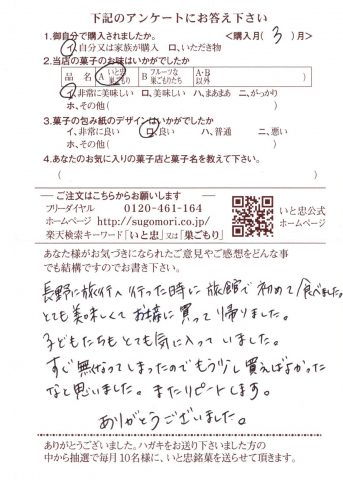 下記のアンケートにお答え下さい
1.御自分で購入されましたか。 <購入月(3)月>
イ、自分又は家族が購入 ロ、いただき物
2.当店の菓子のお味はいかがでしたか
品 名 A いと忠巣ごもり B フルーツな巣ごもりたち A・B以外
イ、非常に美味しい ロ、美味しい ハ、まあまあ ニ、がっかり
ホ、その他( )
3.菓子の包み紙のデザインはいかがでしたか
イ、非常に良い ロ、良い ハ、普通 ニ、悪い
ホ、その他( )
4.あなたのお気に入りの菓子店と菓子名を教えて下さい。
( )
ご注文はこちらからお願いします
フリーダイヤル 0120-461-164
ホームページ http://sugomori.co.jp/
楽天検索キーワード「いと忠」又は「巣ごもり」
いと忠公式
ホームページ
あなた様がお気づきになられたご意見やご感想をどんな事
でも結構ですのでお書き下さい。
長野に旅行へ行った時に旅館で初めて食べました。
とても美味しくてお土産に買って帰りました。
子どもたちもとても気に入っていました。
すぐ無くなってしまったのでもう少し買えばよかった
なと思いました。またリピートします。
ありがとうございました。
ありがとうございました。ハガキをお送り下さいました方の
中から抽選で毎月10名様に、いと忠銘菓を送らせて頂きます。